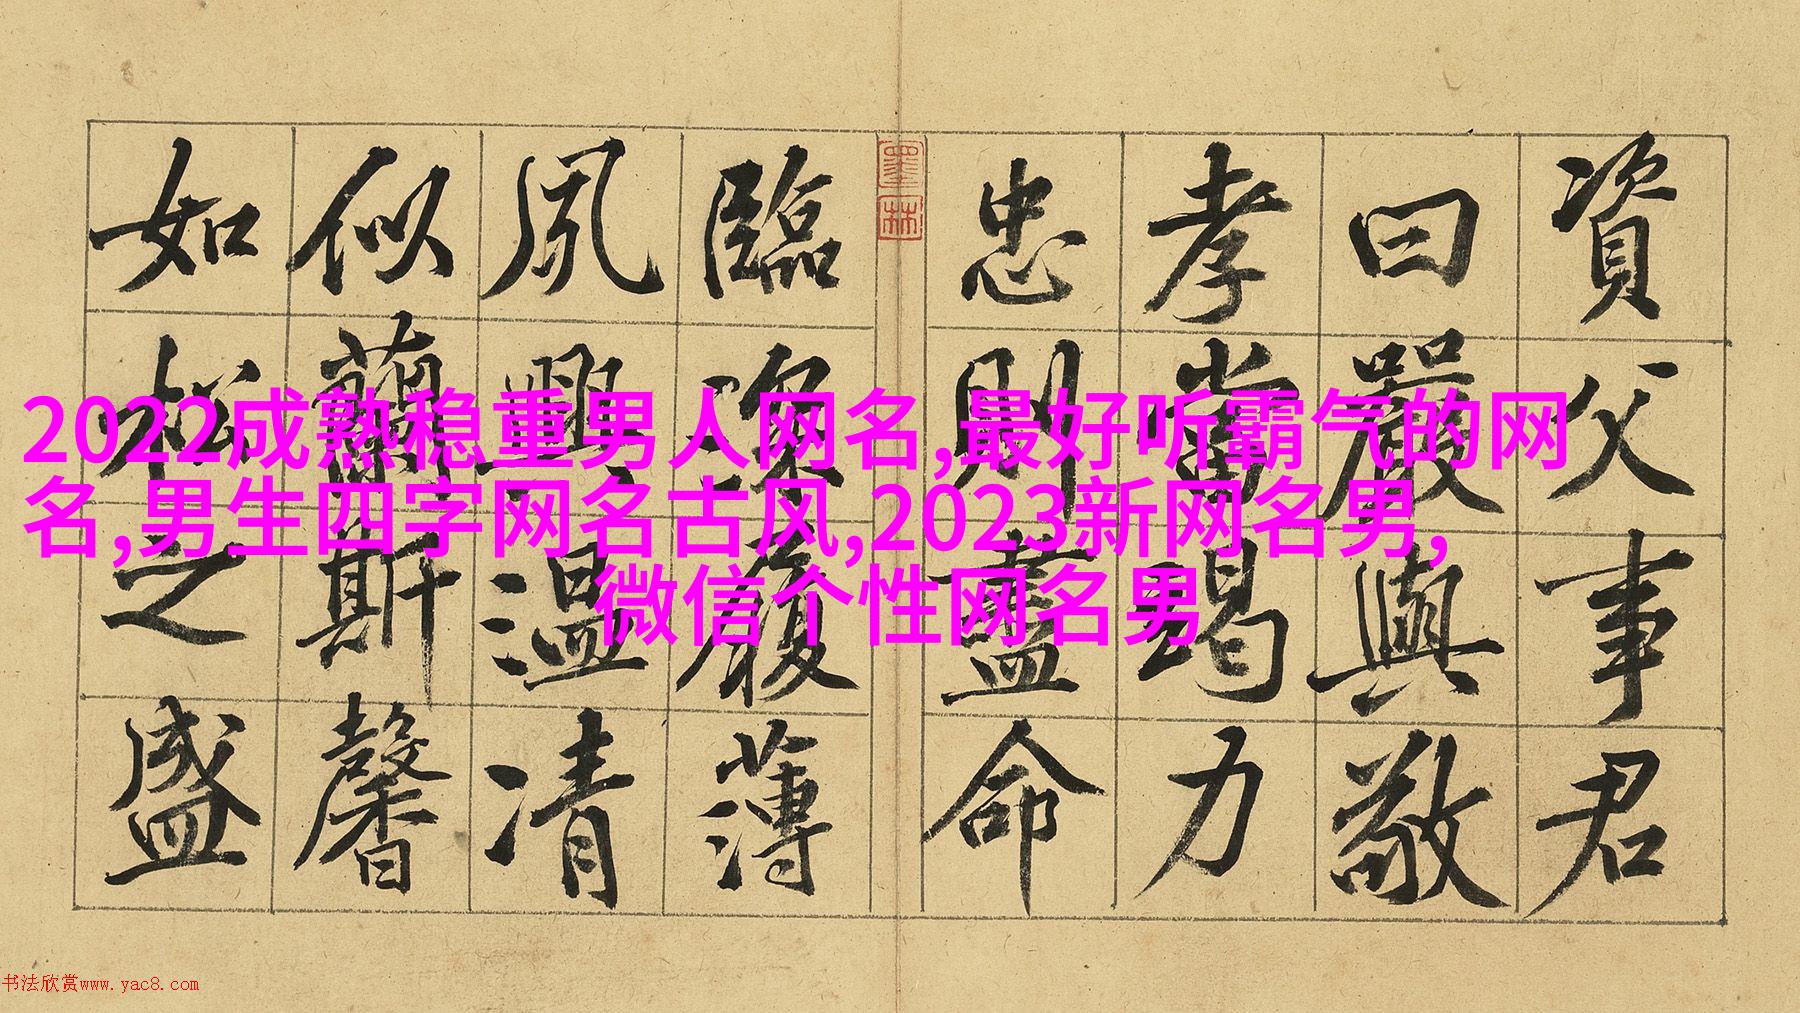 資父事君
曰嚴與敬
孝當竭力
忠則盡命
臨深履薄
夙興溫凊
似蘭斯馨
如松之盛
墨林
2022成熟稳重男人网名,最好听霸气的网
名,男生四字网名古风,2023新网名男,
微信个性网名男
书法欣赏www.yac8.com